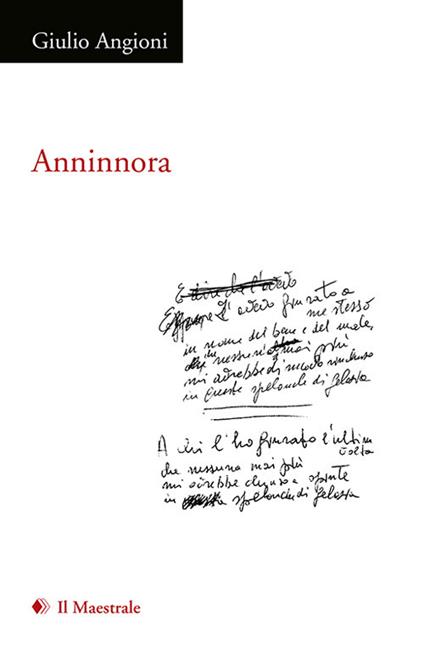 Giulio Angioni
Anninnora
E dire che l'avevo
Eppure l'avevo giurato a
me stesso
in nome del bene e del male,
che nessuno mai più
mi avrebbe di nuovo rinchiuso
in queste spelonche di Gelosia
A chi l'ho giurato l'ultima
volta
che nessuno mai più
mi avrebbe chiuso a
in spelonche di Gelosia
Il Maestrale